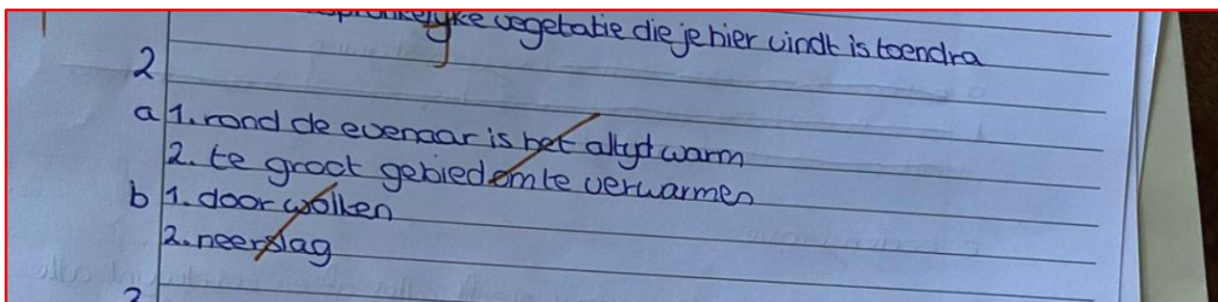 vegetatie die je hier vindt is toendra
2
a 1. rond de evenaar is het altyd warm
2. te groot gebied om te verwarmen
b 1. door wolken
2. neerslag